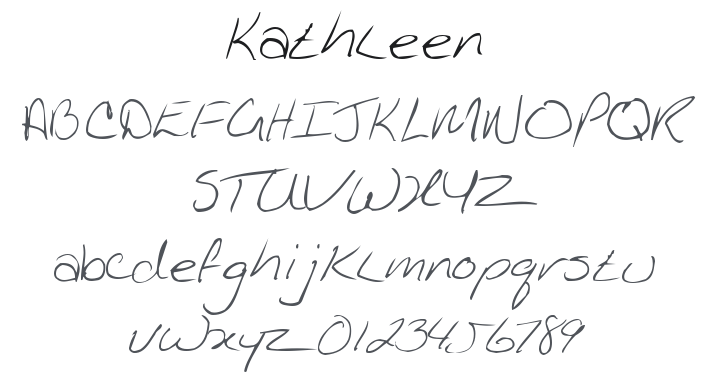 Kathleen
ABCDEFGHIJKLMNOPQR
STUVWXYZ
abcdefghijklmnopqrstu
vwxyz0123456789